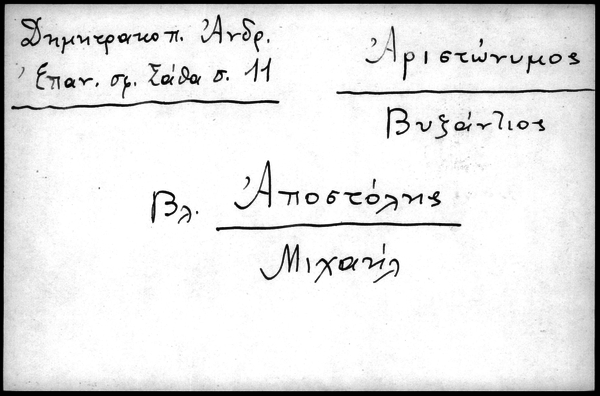 Δημητρακοπ. Ἀνδρ.
Ἐπαν. σφ. Σάθα σ. 11
Ἀριστώνυμος
Βυζάντιος
Βλ. Ἀποστόλης
Μιχαήλ